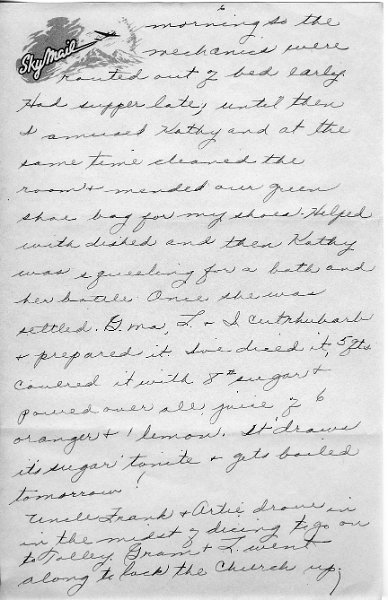 6
Sky Mail
morning so the
mechanics were
routed out of bed early.
Had supper late, until then
I amused Kathy and at the
same time cleaned the
room & mended our green
shoe bag for my shoes. Helped
with dished and then Kathy
was squeeling for a bath and
her bottle. Once she was
settled. G.ma, L. & I cut rhubarb
& prepared it. I've diced it, 5 qts
covered it with 8# sugar &
poured over all juice of 6
oranger & 1 lemon. It "draws
its sugar" tonite & gets boiled
tomorrow!
Uncle Frank & Artie drove in
in the midst of dicing to go on
to Tolley. Gram & L. went
along to lock the Church up,